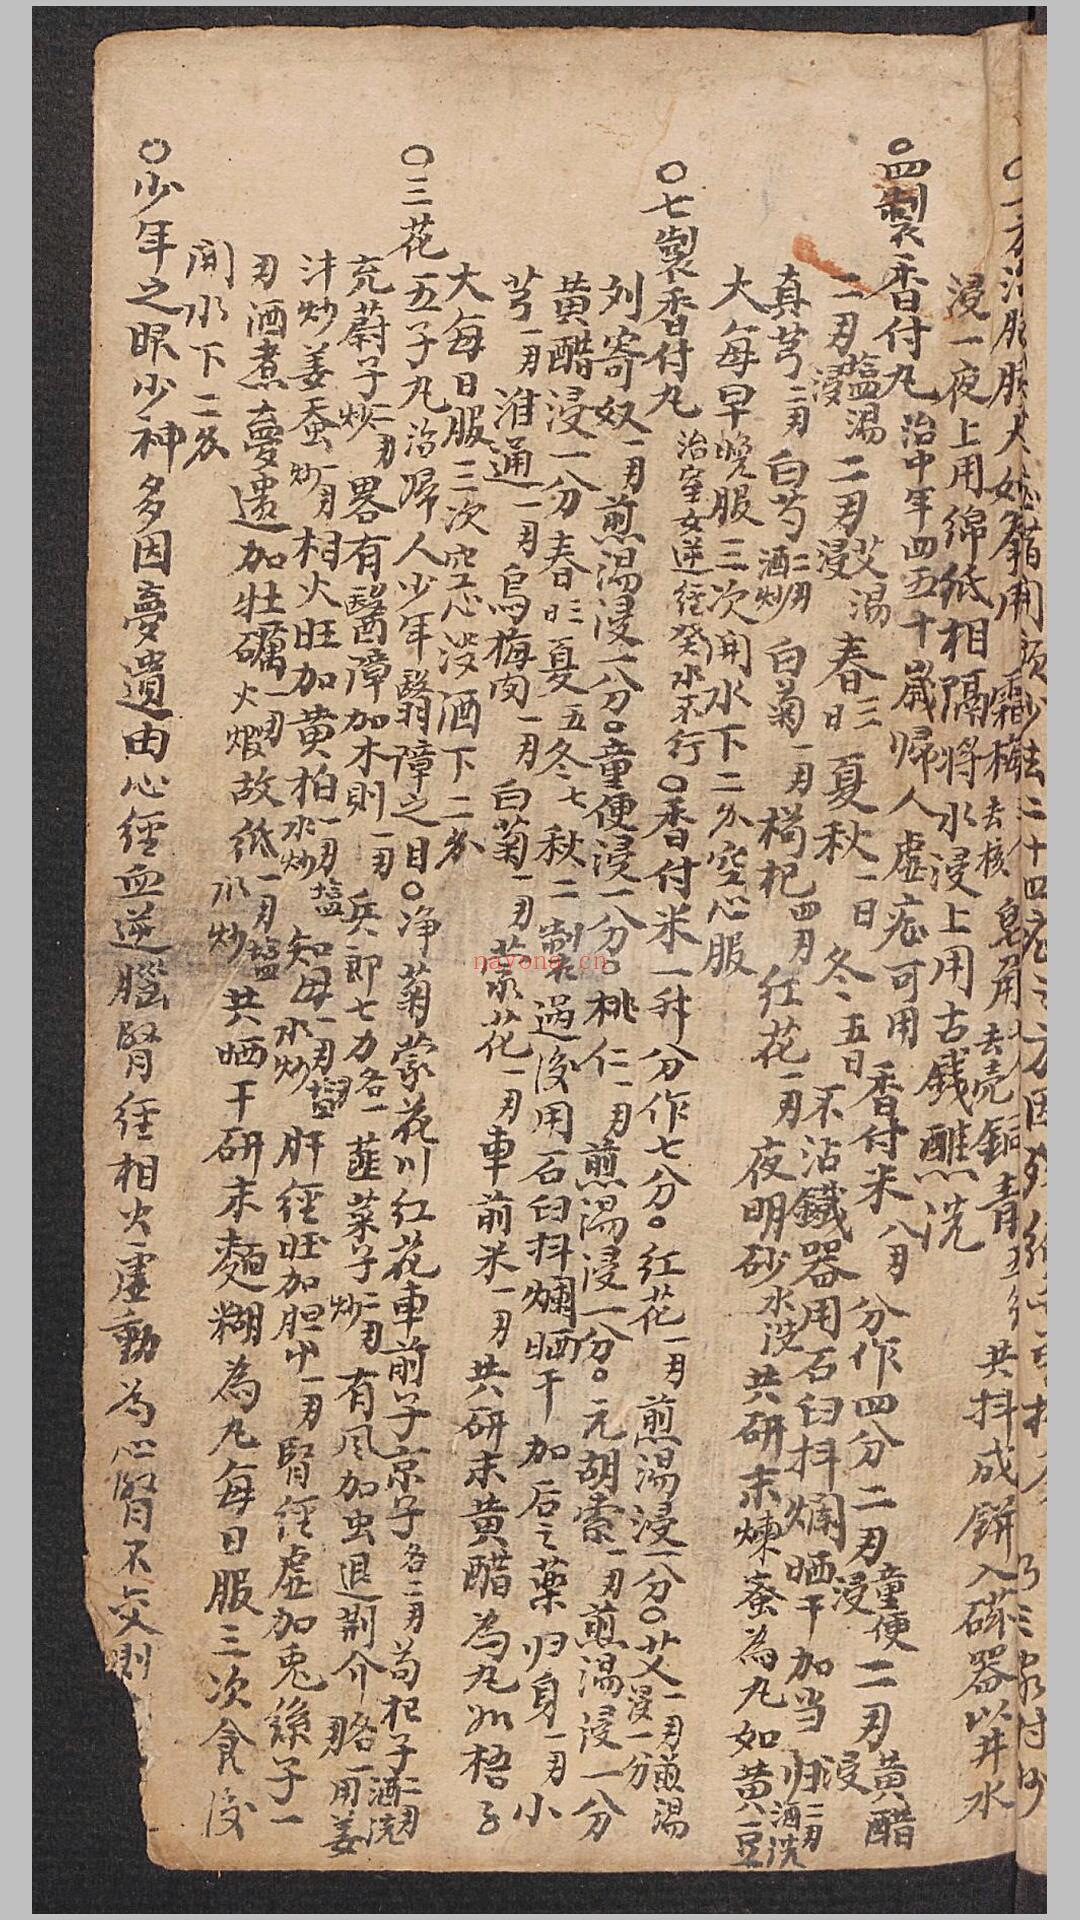 浸一夜上用綿紙相隔將水浸上用古錢醮洗
霜梅去核 皂角去壳銅青 共抖成餅入磁器以井水
○四製香付丸治中年四五十歲歸人虛症可用 香付米八刄分作四分二刄童便浸二刄黃醋浸
二刄塩湯浸二刄艾湯浸春三日夏秋一日冬五日不沾鐵器用石臼抖爛晒干加当归二刄酒洗
真芎二刄白芍二刄酒炒白菊一刄枸杞四刄紅花一刄夜明砂水洗共研末煉蚉為丸如黃豆
大每早晚服三次開水下二分空心服
○七製香付丸治室女逆經癸水不行○香付米一升分作七分。紅花一刄煎湯浸一分○艾一刄煎湯浸一分
列寄奴一刄煎湯浸一分○童便浸一分。桃仁一刄煎湯浸一分。元胡索一刄煎湯浸一分
黃醋浸一分春三日夏五冬七秋二製過後用石臼抖爛晒干加后之藥归身一刄小
芎一刄淮通一刄烏梅肉一刄白菊一刄蒙花一刄車前米一刄共研末黃醋為丸如梧子
大每日服三次空心淡酒下二分
○三花五子丸治歸人少年翳障之目○净菊蒙花川紅花車前子京子各二刄苟杞子二刄酒洗
充蔚子炒二刄畧有醫障加木則一刄兵郎七力各一刄韮菜子炒二刄有风加虫退荆介各一刄用姜
汁炒姜蚕炒一刄相火旺加黄柏一刄塩水炒知母一刄塩水炒肝經旺加胆中一刄腎經虛加兎絲子一
刄酒煮夢遺加牡礪一刄火煆故紙一刄塩水炒共晒干研末麵糊為丸每日服三次食後
開水下二分
○少年之眼少神多因夢遺由心經血逆腦腎經相火虛動為心腎不交則
nayona.cn